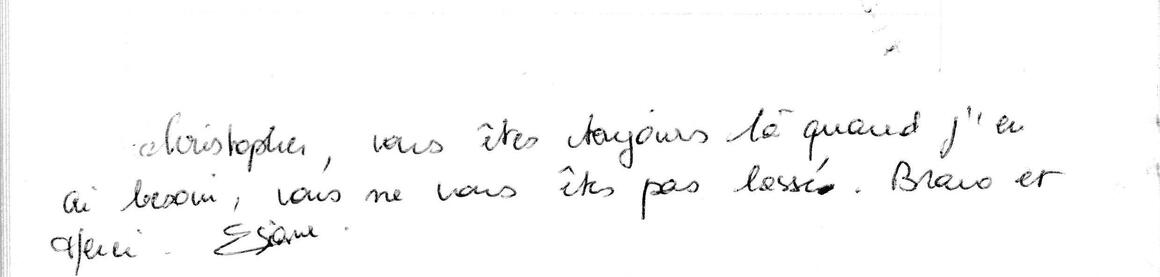 Christopher, vous êtes toujours là quand j'en
ai besoin, vous ne vous êtes pas lassé. Bravo et
Merci.